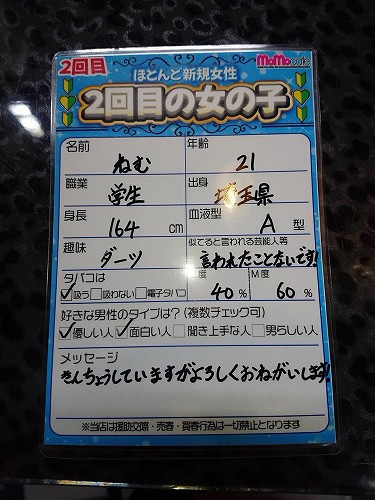 2回目
MoMocafe
ほとんど新規女性
2回目の女の子
名前 年齢
ねむ 21
職業 出身
学生 埼玉県
身長 血液型
164 cm A 型
趣味 似てると言われる芸能人等
ダーツ 言われたことないです!
タバコは 度 M度
吸う 吸わない 電子タバコ 40% 60%
好きな男性のタイプは?(複数チェック可)
優しい人 面白い人 聞き上手な人 男らしい人
メッセージ
きんちょうしていますがよろしくおねがいします!
※当店は援助交際・売春・買春行為は一切禁止となります